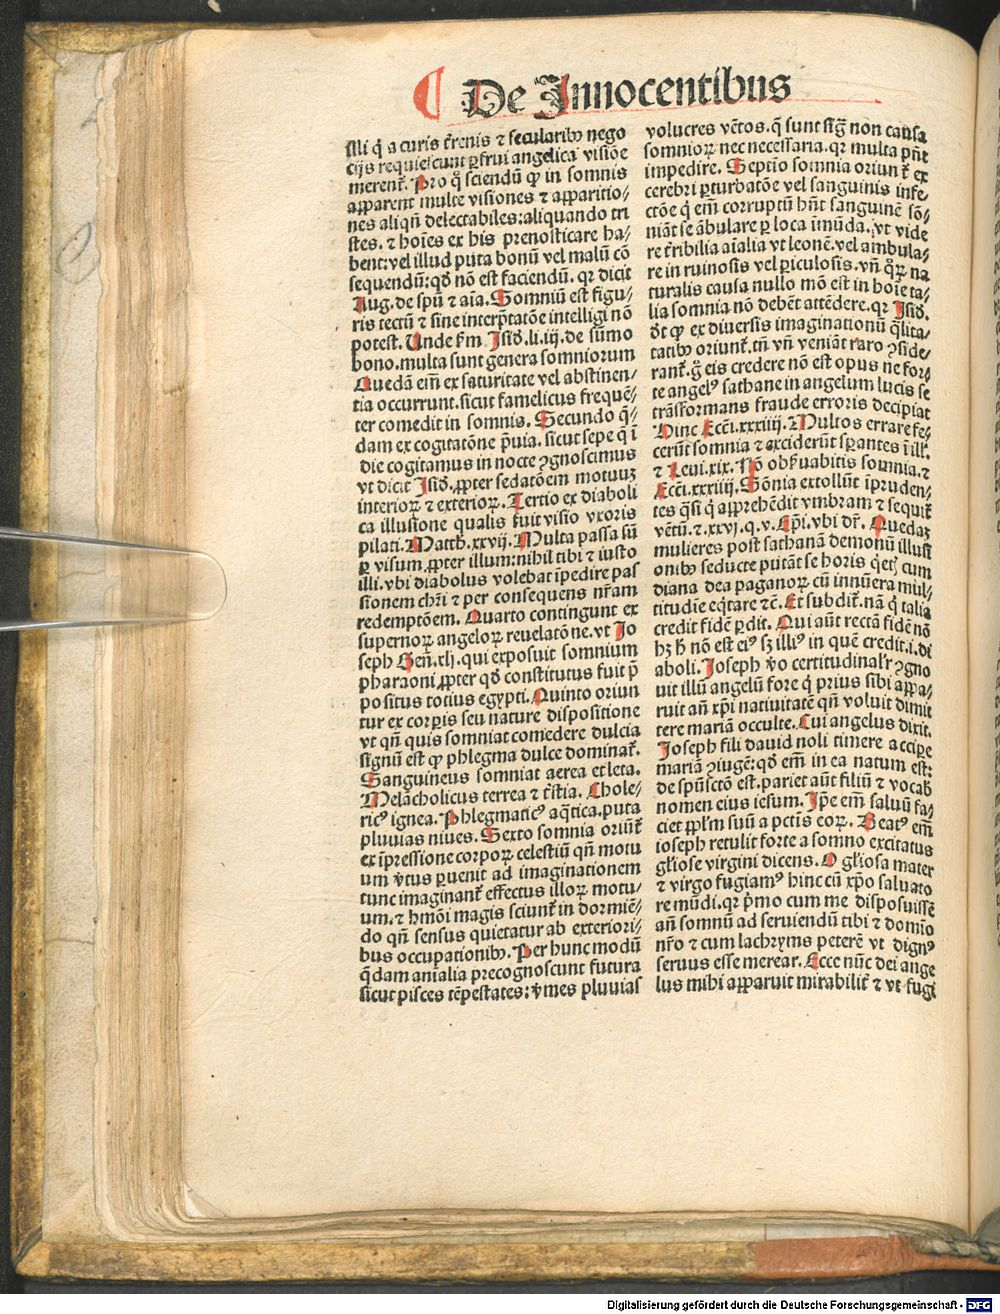 De Innocentibus
illi q̃ a curis t̃renis ⁊ secularibꝰ nego
cijs requiescunt ꝑfrui angelica visiõe
merent᷑. Pro q̊ sciendũ ꝙ in somnis
apparent multe visiones ⁊ apparitio⸗
nes aliqñ delectabiles: aliquando tri
stes. ⁊ hoĩes ex his prenosticare ha⸗
bent: vel illud puta bonũ vel malũ cõ
sequendũ: qđ nõ est faciendũ. qꝛ dicit
Aug. de spũ ⁊ aĩa. Somniũ est figu⸗
ris tectũ ⁊ sine interp̃tatõe intelligi nõ
potest. Unde ẜm Isið. li. iij. de sũmo
bono. multa sunt genera somniorum
Quedã eĩm ex saturitate vel abstinen⸗
tia occurrunt. sicut famelicus frequẽ⸗
ter comedit in somnis. Secundo q̃⸗
dam ex cogitatõne p̃uia. sicut sepe q̃ ĩ
die cogitamus in nocte ꝯgnoscimus
vt dicit Isið. ꝓpter sedatõem motuuȝ
interioꝝ ⁊ exterioꝝ. Tertio ex diaboli
ca illusione qualis fuit visio vxoris
pilati. Matth. xxvij. Multa passa sũ
ꝑ visum ꝓpter illum: nihil tibi ⁊ iusto
illi. vbi diabolus volebat ĩpedire pas
sionem chr̃i ⁊ per consequens nr̃am
redemptõem. Quarto contingunt ex
supernoꝝ angeloꝝ reuelatõne. vt Jo
seph Geñ. xlj. qui exposuit somnium
pharaoni ꝓpter qđ constitutus fuit p̃
positus totius egypti. Quinto oriun
tur ex corꝑis seu nature dispositione
vt qñ quis somniat comedere dulcia
signũ est ꝙ phlegma dulce dominat᷑.
Sanguineus somniat aerea et leta.
Melãcholicus terrea ⁊ t̃stia. Chole⸗
ricꝰ ignea. Phlegmaticꝰ aq̃tica. puta
pluuias niues. Sexto somnia oriũt᷑
ex ĩpressione corpoꝝ celestiũ qñ motu
um v̾tus ꝑuenit ad imaginationem
tunc imaginant᷑ effectus illoꝝ motu⸗
um. ⁊ hmõi magis sciunt᷑ in dormiẽ⸗
do qñ sensus quietatur ab exteriori⸗
bus occupationibꝰ. Per hunc modũ
q̃dam anĩalia precognoscunt futura
sicut pisces tẽpestates: v̾mes pluuias
volucres vẽtos. q̃ sunt sig̃ non causa
somnioꝝ nec necessaria. qꝛ multa pñt
impedire. Septĩo somnia oriunt᷑ ex
cerebri ꝑturbatõe vel sanguinis infe⸗
ctõe q̃ em̃ corruptũ hñt sanguinẽ sõ⸗
niãt se ãbulare ꝑ loca ĩmũda. vt vide
re t̾ribilia aĩalia vt leonẽ. vel ambula⸗
re in ruinosis vel ꝑiculosis. vñ q̊ꝝ na
turalis causa nullo mõ est in hoĩe ta⸗
lia somnia nõ debẽt attẽdere. qꝛ Isið.
đt ꝙ ex diuersis imaginationũ q̃lita⸗
tatibꝰ oriunt᷑. tñ vñ veniãt raro ꝯside⸗
rant᷑. g̊ eis credere nõ est opus ne for⸗
te angelꝰ sathane in angelum lucis se
trãsformans fraude erroris decipiat
Hinc Ecc̃i. xxxiiij. Multos errare fe⸗
cerũt somnia ⁊ exciderũt sꝑantes ĩ ill᷑.
⁊ Leui. xix. Nõ obẜuabitis somnia. ⁊
Ecc̃i. xxxiiij. Sõnia extollũt ĩpruden⸗
tes q̃si q̃ apprehẽdit vmbram ⁊ sequit᷑
vẽtũ. ⁊. xxvj. q. v. Ep̃i. vbi dr̃. Quedaȝ
mulieres post sathanã demonũ illusi
onibꝰ seducte putãt se horis q̃etꝭ cum
diana dea paganoꝝ cũ innũera mul⸗
titudĩe eq̃tare ⁊c̃. Et subdit᷑. nã q̃ talia
credit fidẽ ꝑdit. Qui aũt rectã fidẽ nõ
hȝ h̃ nõ est eiꝰ sȝ illiꝰ in quẽ credit. i. di
aboli. Joseph v̾o certitudinalr̃ ꝯgno
uit illũ angelũ fore q̃ prius sibi appa⸗
ruit añ xp̃i natiuitatẽ qñ voluit dimit
tere mariã occulte. Cui angelus dixit.
Joseph fili dauid noli timere accipe
mariã ꝯiugẽ: qđ em̃ in ea natum est:
de spũsctõ est. pariet aũt filiũ ⁊ vocab̃
nomen eius iesum. Ip̃e em̃ saluũ fa⸗
ciet pp̃lm̃ suũ a pctĩs eoꝝ. Beatꝰ em̃
ioseph retulit forte a somno excitatus
gl̃iose virgini dicens. O gl̃iosa mater
⁊ virgo fugiamꝰ hinc cũ xp̃o saluato
re mũdi. qꝛ p̃mo cum me disposuissẽ
añ somnũ ad seruiendũ tibi ⁊ domĩo
nr̃o ⁊ cum lachryms peterẽ vt dignꝰ
seruus esse merear. Ecce nũc dei ange
lus mihi apparuit mirabilit᷑ ⁊ vt fugi
Digitalisierung gefördert durch die Deutsche Forschungsgemeinschaft - DFG